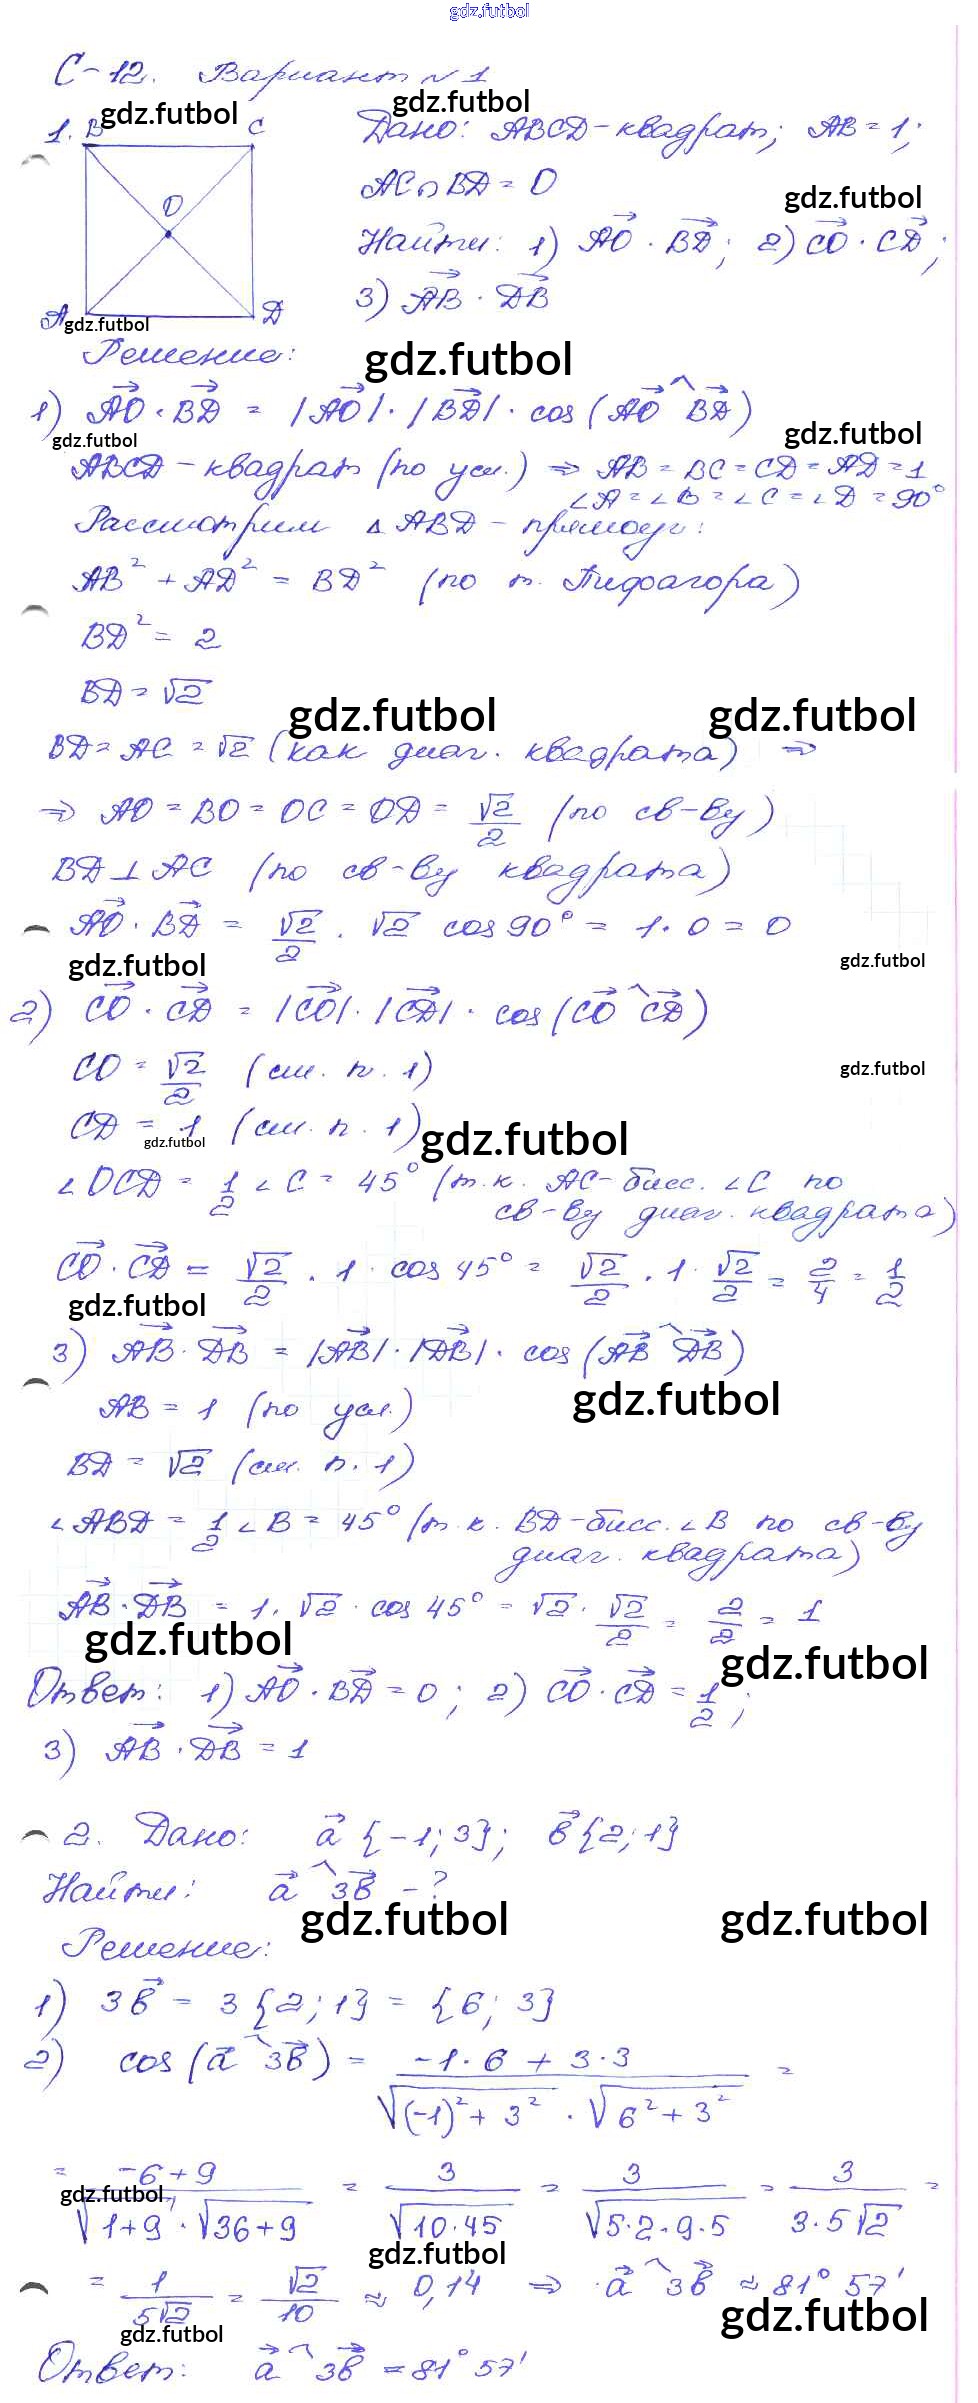 gdz.futbol
С-12. Вариант № 1
gdz.futbol gdz.futbol
1. B C
Дано: ABCD-квадрат; AB = 1;
AC∩BD = O
gdz.futbol
O
Найти: 1) AO→ · BD→; 2) CO→ · CD→;
3) AB→ · DB→
A D
gdz.futbol
Решение:
gdz.futbol
1) AO→ · BD→ = |AO→| · |BD→| · cos(AO→ ^ BD→)
gdz.futbol gdz.futbol
ABCD - квадрат (по усл.) ⇒ AB = BC = CD = AD = 1
∠A = ∠B = ∠C = ∠D = 90°
Рассмотрим △ABD - прямоуг:
AB² + AD² = BD² (по т. Пифагора)
BD² = 2
BD = √2
gdz.futbol gdz.futbol
BD = AC = √2 (как диаг. квадрата) ⇒
⇒ AO = BO = OC = OD = √2/2 (по св-ву)
BD ⊥ AC (по св-ву квадрата)
AO→ · BD→ = √2/2 · √2 cos 90° = 1 · 0 = 0
gdz.futbol gdz.futbol
2) CO→ · CD→ = |CO→| · |CD→| · cos(CO→ ^ CD→)
CO = √2/2 (см. п. 1)
gdz.futbol
CD = 1 (см. п. 1)
gdz.futbol gdz.futbol
∠OCD = 1/2 ∠C = 45° (т.к. AC-бисс. ∠C по
св-ву диаг. квадрата)
CO→ · CD→ = √2/2 · 1 · cos 45° = √2/2 · 1 · √2/2 = 2/4 = 1/2
gdz.futbol
3) AB→ · DB→ = |AB→| · |DB→| · cos(AB→ ^ DB→)
gdz.futbol
AB = 1 (по усл.)
BD = √2 (см. п. 1)
∠ABD = 1/2 ∠B = 45° (т.к. BD-бисс. ∠B по св-ву
диаг. квадрата)
AB→ · DB→ = 1 · √2 · cos 45° = √2 · √2/2 = 2/2 = 1
gdz.futbol gdz.futbol
Ответ: 1) AO→ · BD→ = 0; 2) CO→ · CD→ = 1/2;
3) AB→ · DB→ = 1
2. Дано: a→ {-1; 3}; b→ {2; 1}
Найти: a→ ^ 3b→ - ?
gdz.futbol gdz.futbol
Решение:
1) 3b→ = 3{2; 1} = {6; 3}
2) cos(a→ ^ 3b→) = (-1·6 + 3·3)/(√((-1)² + 3²) · √(6² + 3²)) =
= (-6+9)/(√(1+9) · √(36+9)) = 3/√(10·45) = 3/√(5·2·9·5) = 3/(3·5√2) =
gdz.futbol gdz.futbol
= 1/(5√2) = √2/10 ≈ 0,14 ⇒ a→ ^ 3b→ ≈ 81° 57'
gdz.futbol gdz.futbol
Ответ: a→ ^ 3b→ = 81° 57'